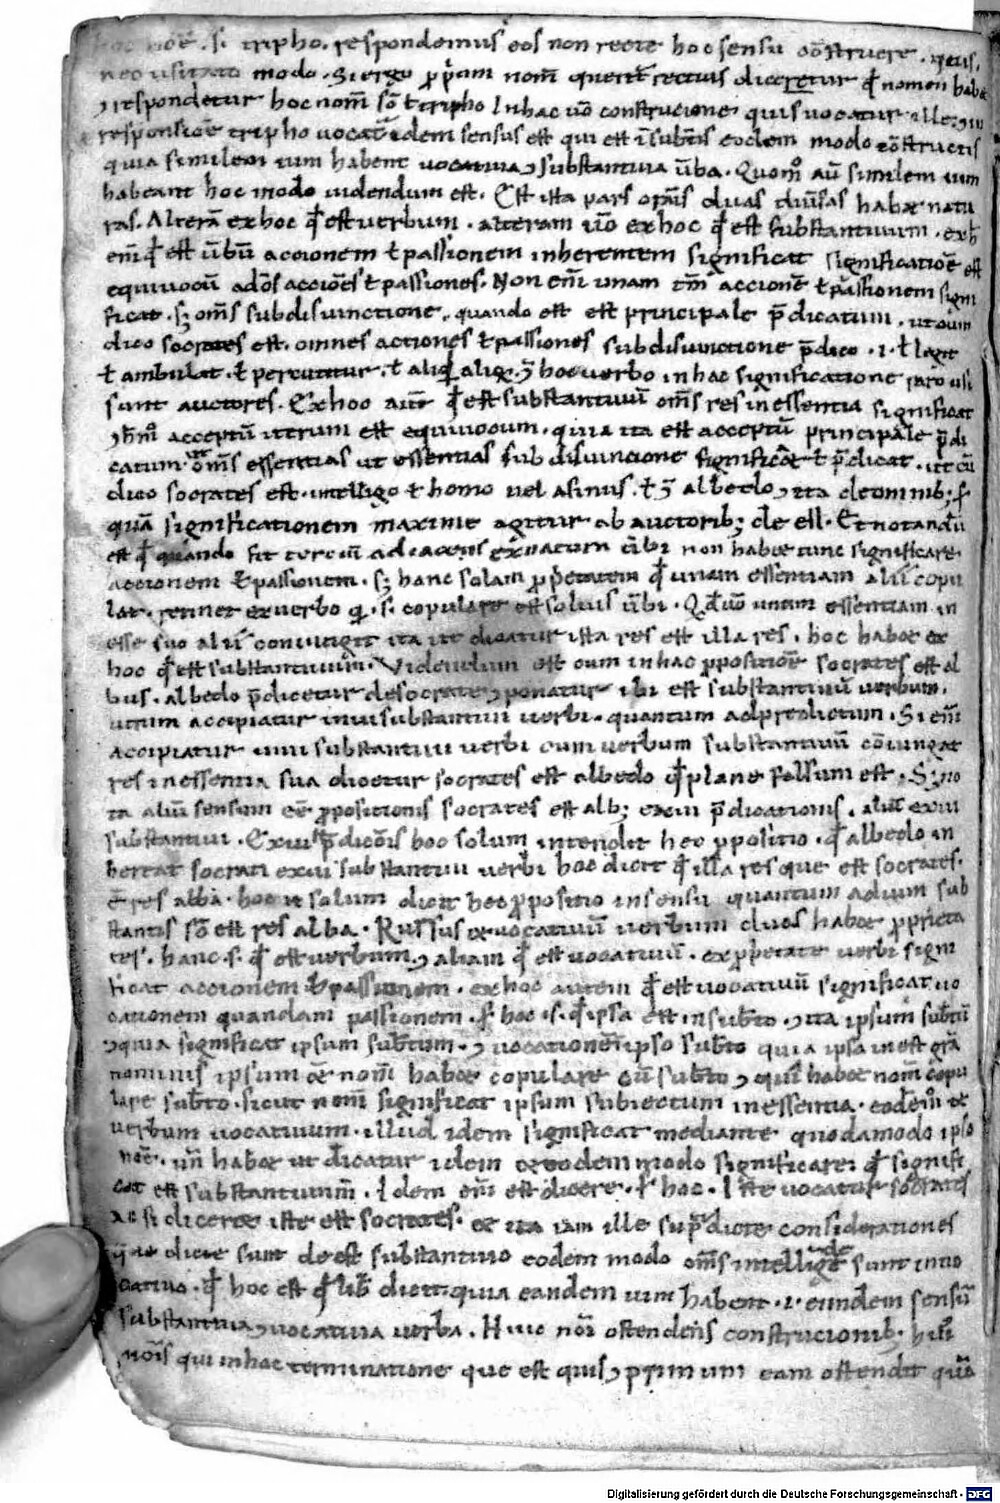 hoc nom̄. s. tripho. respondemus eos non recte hoc sensu cōstruere. quis.
nec usitato modo. Si ergo ꝓpriam nom̄ querent̄ rectius diceretur qd̄ nomen habet
⁊ respondetur hoc nom̄ sō ł tripho In hac uō constructione quis uocatur ille ⁊ in
responsiōe tripho uocat̄ idem sensus est qui est ī subētis eodem modo cōstructis
quia similem uim habent uocatiua ⁊ substantiua ūba. Quom̄o aū similem uim
habeant hoc modo uidendum est. Est ista pars orōnis duas diūsas habet natu
ras. Alterā ex hoc qd̄ est uerbum. alteram uō ex hoc qd̄ est substantiuum. ex hoc
enī qd̄ est ūbū accionem ł passionem inherentem significat significatiōe est
equiuocū ad om̄s acciōes ł passiones. Non enī unam tm̄ accionē ł passionem signi
ficat. sꝫ om̄s sub disiunctione. quando est est principale p̄dicatum. ut cum
dico socrates est. omnes actiones ł passiones sub disiunctione p̄dico .i. ł legit
ł ambulat. ł percutitur. ł aliqd̄ aliqꝫ hoc uerbo in hac significatione raro usi
sunt auctores. Ex hoc aūt qd̄ est substantiuū om̄s res in essentia significat
⁊ h̄ m̄o acceptū iterum est equiuocum. quia ita est acceptū principale p̄di
catum ut om̄s essentias ut essentias sub disiunctione significet ł p̄dicat. ut cū
dico socrates est. intelligo ł homo uel asinus. ł albedo ⁊ ita de omnibꝫ
quā significationem maxime agitur ab auctoribꝫ de est. Et notandū
est qd̄ quando fit terciū adiacens ex natura ūbi non habet tunc significare
accionem ł passionem. sꝫ hanc solam ꝓprietatem qd̄ unam essentiam alii copu
lat. retinet ex uerbo .s. copulare est solius ūbi. Qd̄ uō unam essentiam in
esse suo alii coniungit ita ut dicatur ista res est illa res. hoc habet ex
hoc qd̄ est substantiuum. Videndum est cum in hac ꝓpositiōe socrates est al
bus. albedo p̄dicetur de socrate ⁊ ponatur ibi est substantiuū uerbum.
utrum accipiatur in ui substantiui uerbi. quantum ad predictum. Si enī
accipiatur in ui substantiui uerbi cum uerbum substantiuū cōiungat
res in essentia sua dicetur socrates est albedo qd̄ plane falsum est. Sꝫ no
ta aliū sensum eē ꝓpositionis socrates est albꝫ ex ui p̄dicationis. aliū ex ui
substantiui. Ex ui p̄dicatōis hoc solum intendit hec ꝓpositio. qd̄ albedo in
hereat socrati ex ui substantiui uerbi hoc dicit qd̄ illa res que est socrates.
ē res alba. hoc ut solum dicit hec ꝓpositio in sensu quantum ad uim sub
stantis sō est res alba. Rursus ex uocatiuū uerbum duas habet ꝓprieta
tes. hanc .s. qd̄ est uerbum. ⁊ aliam qd̄ est uocatiuū. ex ꝓprietate uerbi signi
ficat accionem ł passionem. ex hoc autem qd̄ est uocatiuū significat uo
cationem quandam passionem. hoc .s. qd̄ ipsa est in subiecto. ⁊ ita ipsum subiectū
⁊ quia significat ipsum subiectum. ⁊ uocationē in ipso subiecto quia ipsa inest grā
nominis ipsum et nom̄ habet copulare cū subiecto ⁊ quī habet nom̄ copu
lare subiecto. sicut nom̄ significat ipsum subiectum in essentia. eodem̄o et
uerbum uocatiuum. illud idem significat mediante quodammodo ipso
nōe. un̄ habet ut dicatur idem et eodem modo significare qd̄ signifi
cat est substantiuum. Idem enī est dicere hoc. Iste uocatur socrates
ac si diceret iste est socrates. et ita iam ille sup̄dicte considerationes
que dicte sunt de est substantiuo eodem modo om̄s intelligēde sunt in uo
catiuo. qd̄ hoc est qd̄ lib̄ dicit. quia eandem uim habent .i. eundem sensū
substantiua ⁊ uocatiua uerba. Huic nōi ostendens constructionibꝫ
nōis qui in hac terminatione que est quis ⁊ primum eam ostendit quā
Digitalisierung gefördert durch die Deutsche Forschungsgemeinschaft - DFG